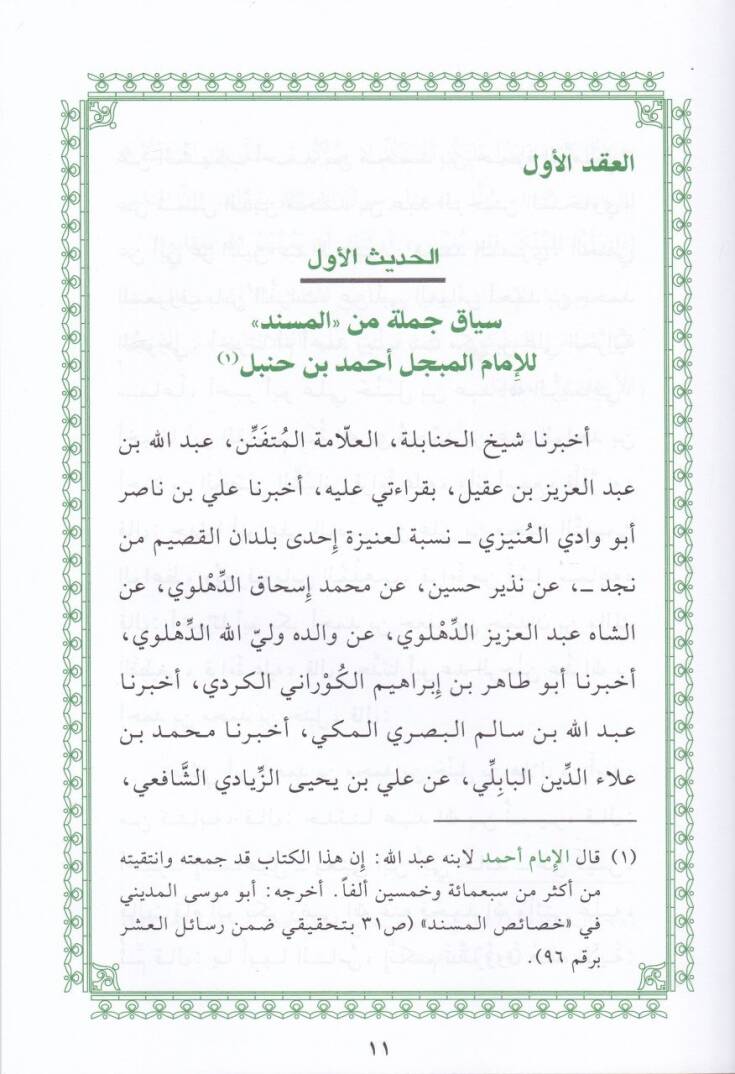 العقد الأول
الحديث الأول
سياق جملة من «المسند»
للإمام المبجل أحمد بن حنبل(١)
أخبرنا شيخ الحنابلة، العلّامة المُتفَنِّن، عبد الله بن
عبد العزيز بن عقيل، بقراءتي عليه، أخبرنا علي بن ناصر
أبو وادي العُنيزي ـ نسبة لعنيزة إحدى بلدان القصيم من
نجد ـ، عن نذير حسين، عن محمد إسحاق الدِّهْلوي، عن
الشاه عبد العزيز الدِّهْلوي، عن والده وليّ الله الدِّهْلوي،
أخبرنا أبو طاهر بن إبراهيم الكُوْراني الكردي، أخبرنا
عبد الله بن سالم البصري المكي، أخبرنا محمد بن
علاء الدِّين البابِلِّي، عن علي بن يحيى الزِّيادي الشَّافعي،
(١) قال الإمام أحمد لابنه عبد الله: إن هذا الكتاب قد جمعته وانتقيته
من أكثر من سبعمائة وخمسين ألفاً. أخرجه: أبو موسى المديني
في «خصائص المسند» (ص٣١ بتحقيقي ضمن رسائل العشر
برقم ٩٦).
١١